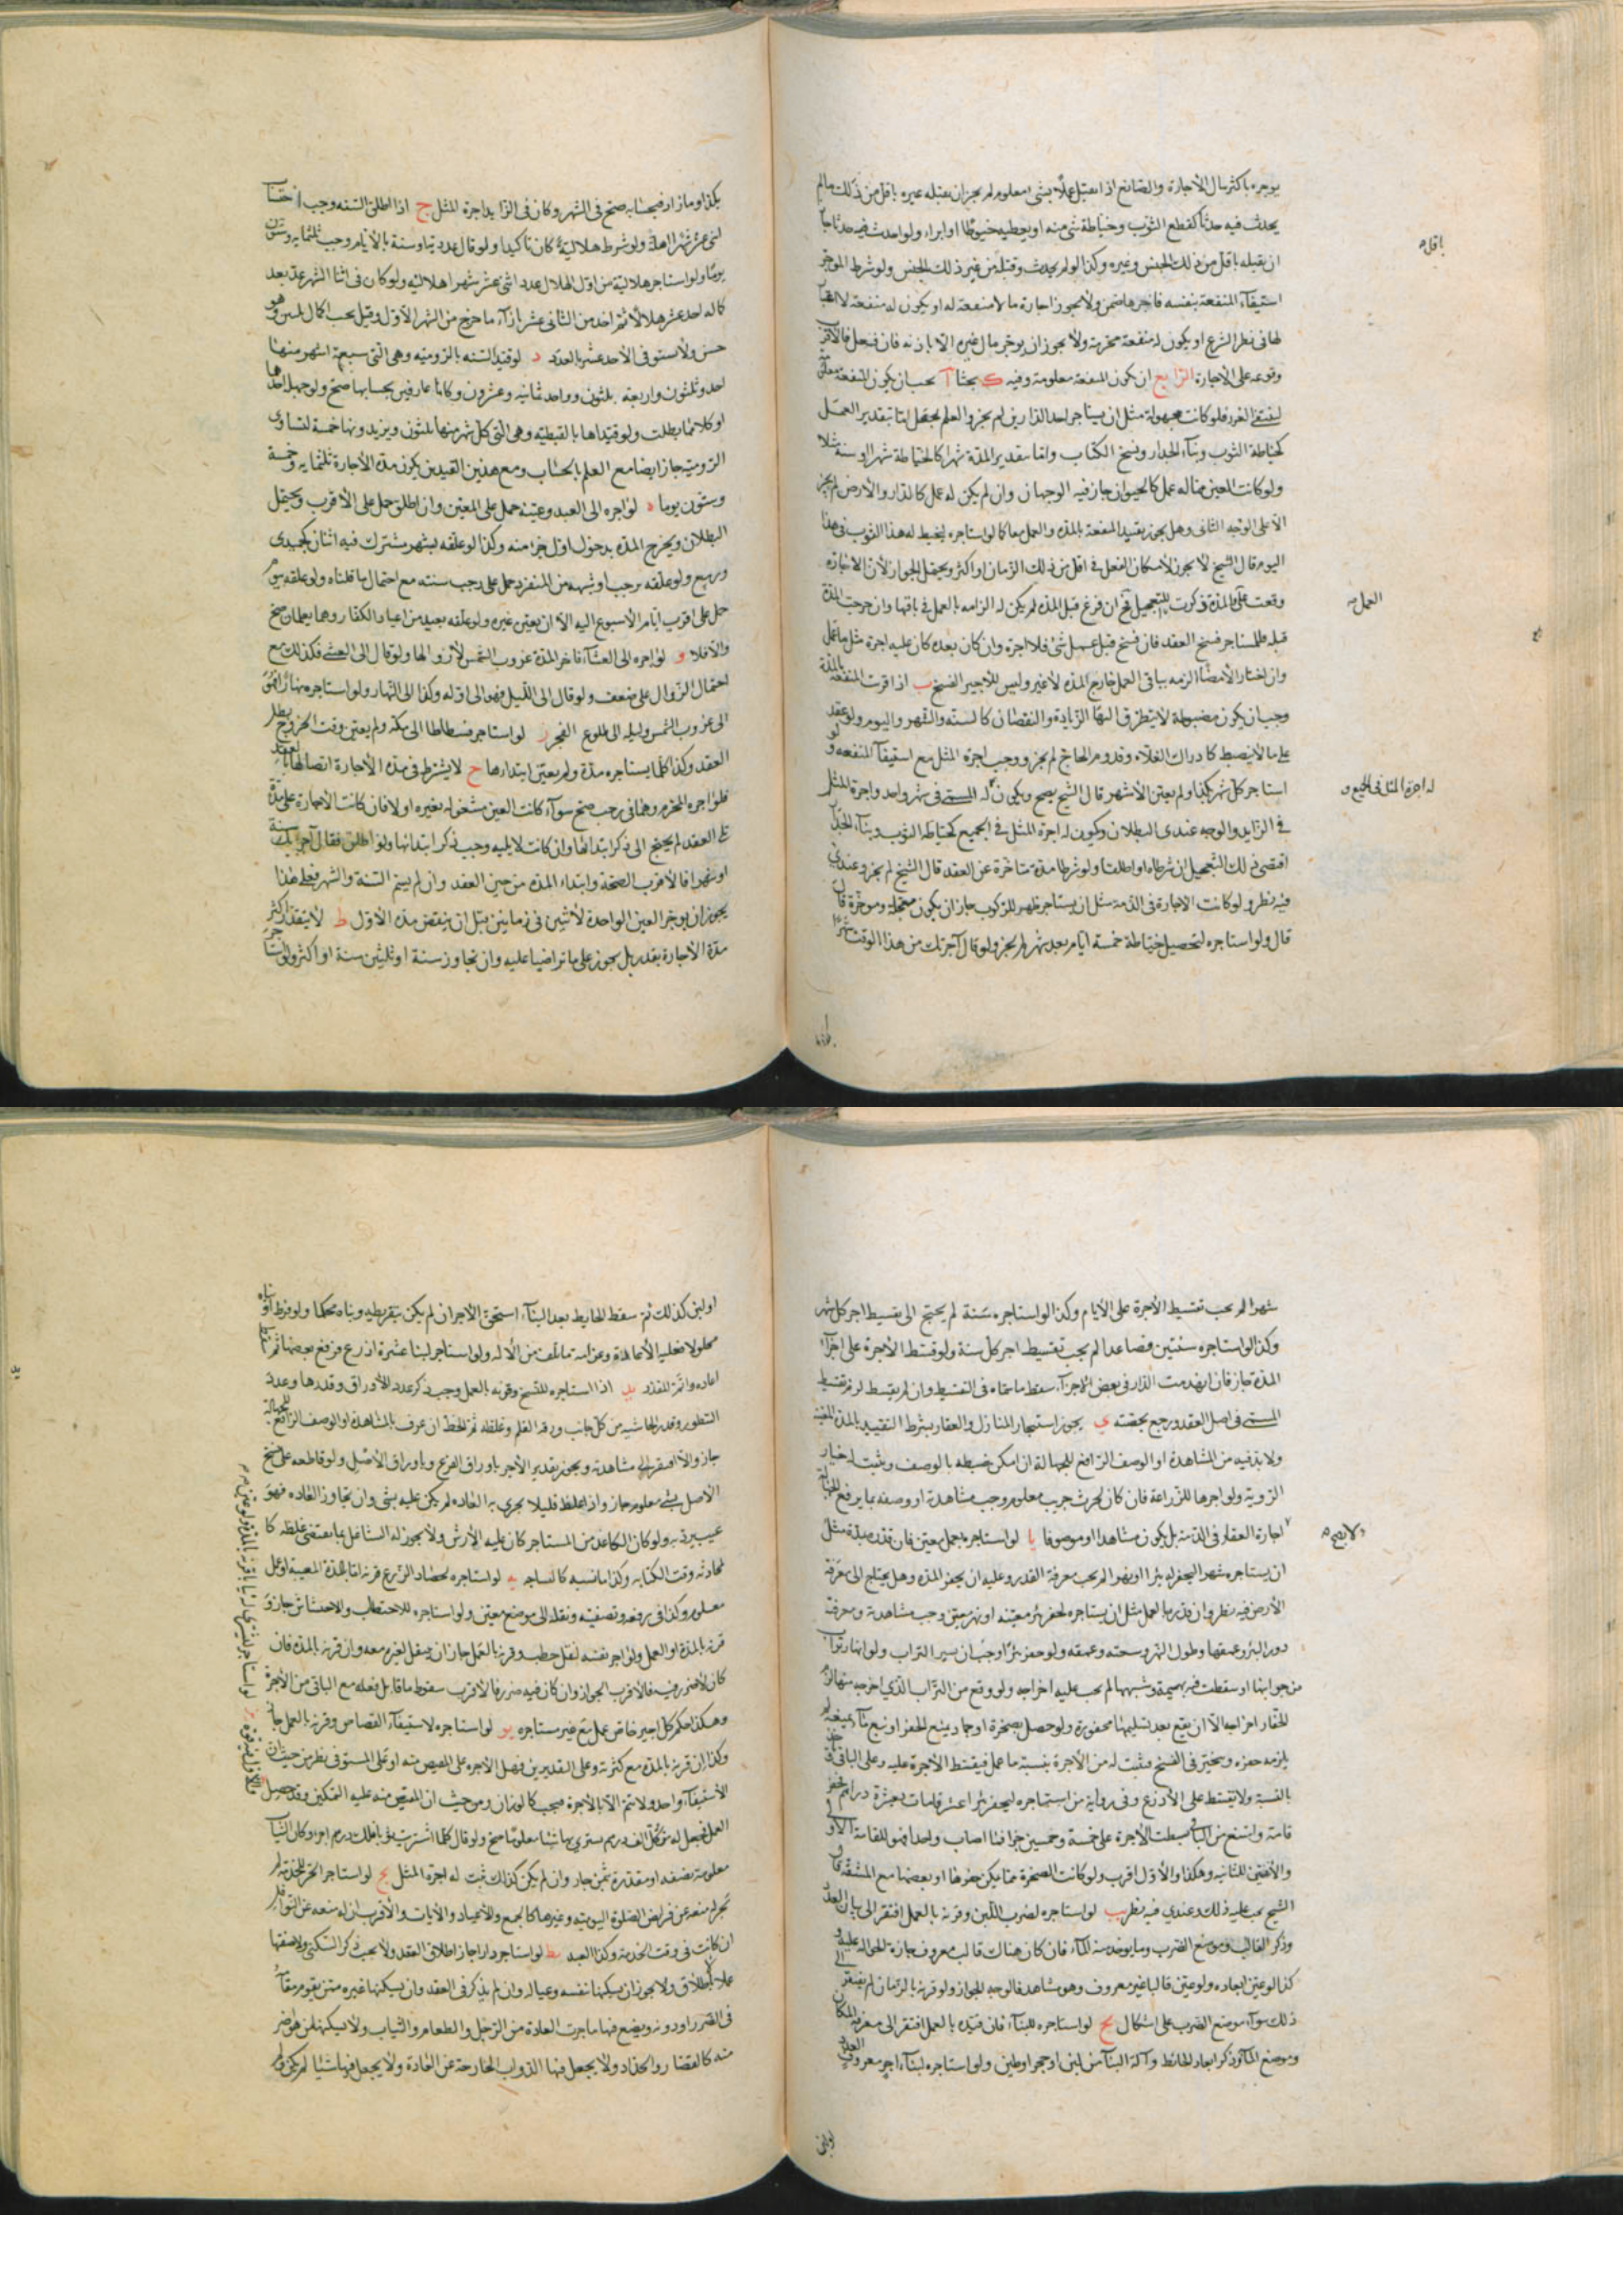 يوجره باكثر مال الاجارة والصانع اذا تقبل عملا بشئ معلوم لم يجز ان يقبله غيره باقل من ذلك مالم
يحدث فيه حدثا كقطع الثوب وخياطة شئ منه او يعطيه خيوطا او ابراء ولو احدث فيه حدثا جاز
ان يقبله باقل من ذلك الجنس وغيره وكذا لو لم يحدث وقبله من غير ذلك الجنس ولو شرط الموجر
باقل
استيفاء المنفعة بنفسه فاجرها ضمن ولا يجوز اجارة ما لا منفعة له او يكون له منفعة لا اعتبار
لها فى نظر الشرع او يكون له منفعة محرمة ولا يجوز ان يوجر مال غيره الا باذنه فان فعل فالاقرب
وقوعه على الاجارة الرابع ان يكون المنفعة معلومة وفيه ك بحثا آ يجب ان يكون المنفعة معلومة
لينتفى الغرر فلو كانت مجهولة مثل ان يستاجر احد الدارين لم يجز والعلم يحصل اما بتقدير العمل
كخياطة الثوب وبناء الجدار ونسخ الكتاب واما بتقدير المدة شهرا كالخياطة شهرا او سنة مثلا
ولو كانت العين مما له عمل كالحيوان جاز فيه الوجهان وان لم يكن له عمل كالدار والارض لم يجز
الا على الوجه الثانى وهل يجوز تقييد المنفعة بالمدة والعمل معا كما لو استاجره ليخيط له هذا الثوب فى هذا
اليوم قال الشيخ لا يجوز لامكان الفعل فى اقل من ذلك الزمان او اكثر ويحتمل الجواز لان الاجارة
وقعت على والمدة ذكرت للتعجيل فح ان فرغ قبل المدة لم يكن له الزامه بالعمل فى باقيها وان خرجت المدة
العمل
قبله فللمستاجر فسخ العقد فان فسخ قبل عمل شئ فلا اجرة وان كان بعده كان عليه اجرة مثل ما عمل
وان اختار الامضاء الزمه بباقى العمل خارج المدة لا غير وليس للاجير الفسخ ب اذا قرنت المنفعة بالمدة
وجب ان يكون مضبوطة لا يتطرق اليها الزيادة والنقصان كالسنة والشهر واليوم ولو عقد
على ما لا ينضبط كادراك الغلاة وقدوم الحاج لم يجز ووجب اجرة المثل مع استيفاء المنفعة ولو
استاجر كل شهر بكذا ولم يعين الاشهر قال الشيخ يصح ويكون له المسمى فى شهر واحد واجرة المثل
له اجرة المثل فى الجميع و
فى الزايد والوجه عندى البطلان ويكون له اجرة المثل فى الجميع كخياطة الثوب وبناء الجدار
اقتضى ذلك التعجيل ان شرطاه او اطلقا ولو شرطا مدة متاخرة عن العقد قال الشيخ لم يجز وعندى
فيه نظر ولو كانت الاجارة فى الذمة مثل ان يستاجر ظهر للركوب جاز ان يكون معجلة وموخرة قال
قال ولو استاجره لتحصيل خياطة خمسة ايام بعد شهر لم يجز ولو قال آجرتك من هذا الوقت شهرا
بكذا وما زاد فبحسابه صح فى الشهر وكان فى الزايد اجرة المثل ج اذا اطلق السنة وجب احتساب
اثنى عشر شهرا اهلة ولو شرط هلالية كان تاكيدا ولو قال عددية او سنة بالايام وجب ثلثمايه وستون
يوما ولو استاجر هلالية من اول الهلال عدد اثنى عشر شهرا هلاليه ولو كان فى اثنا الشهر عد بعد
كماله احد عشر هلالا ثم اخذ من الثانى عشر بازاء ما خرج من الشهر الاول وقيل يجب اكمال وهو
حسن ولا يستوفى الاحد عشر بالعدد د لو قيد السنه بالروميه وهى التى سبعة اشهر منها
احد وثلثون واربعة ثلثون وواحد ثمانيه وعشرون وكانا عارفين بحسابها صح ولو جهل احدهما
او كلاهما بطلت ولو قيداها بالقبطيه وهى التى كل شهر منها ثلثون ويزيدونها خمسة لتساوى
الرومية جاز ايضا مع العلم بالحساب ومع هذين القيدين يكون مدة الاجارة ثلثمايه وخمسة
وستون يوما ه لو اجره الى العيد وعينه حمل على المعين وان اطلق حمل على الاقرب ويحتمل
البطلان ويخرج المدة بدخول اول جزء منه وكذا لو علقه بشهر مشترك فيه اثنان كجمادى
وربيع ولو علقه برجب او شبهه من المنفرد حمل على رجب سنته مع احتمال ما قلناه ولو علقه بيوم
حمل على اقرب ايام الاسبوع اليه الا ان يعين غيره ولو علقه بعيد من اعياد الكفار وهما يعلمان صح
والا فلا و لو اجره الى العشاء فاخر المدة غروب الشمس لا زوالها ولو قال الى العشى فكذلك مع
احتمال الزوال على ضعف ولو قال الى الليل فهو الى اوله وكذا الى النهار ولو استاجره نهارا فهو
الى غروب الشمس وليله الى طلوع الفجر ز لو استاجر فسطاطا الى مكة ولم يعين وقت الخروج بطل
العقد وكذا كلما يستاجره مدة ولم يعين ابتداءها ح لا يشترط فى مدة الاجارة اتصالها بالعقد
فلو اجره المحرم وهما فى رجب صح سواء كانت العين مشغوله بغيره او لا فان كانت الاجارة على مدة
تلى العقد لم يحتج الى ذكر ابتدائها وان كانت لا يليه وجب ذكر ابتدائها ولو اطلق فقال آجرتك سنة
او شهرا فالاقرب الصحة وابتداء المدة من حين العقد وان لم يسم السنة والشهر فعلى هذا
يجوز ان يوجر العين الواحدة لاثنين فى زمانين قبل ان ينقضى مدة الاول ط لا يتقدر اكثر
مدة الاجارة بقدر بل يجوز على ما تراضيا عليه وان تجاوز سنة او ثلثين سنة او اكثر ولو استاجر
شهرا لم يجب تقسيط الاجرة على الايام وكذا لو استاجره سنة لم يحتج الى تقسيط اجر كل شهر
وكذا لو استاجره سنتين فصاعدا لم يجب تقسيط اجر كل سنة ولو قسط الاجرة على اجزاء
المدة جاز فان انهدمت الدار فى بعض الاجزاء سقط ما سماه فى التقسيط وان لم يقسط لزم تقسيط
المسمى فى اصل العقد ورجع بحصته ى يجوز استيجار المنازل والعقار بشرط التقييد بالمدة المعينة
ولا بد فيه من المشاهدة او الوصف الرافع للجهالة ان امكن ضبطه بالوصف ويثبت له خيار
الروية ولو اجرها للزراعة فان كان لحرث جريب معلوم وجب مشاهدته او وصفه بما يرفع الجهالة
اجارة العقار فى الذمة بل يكون مشاهدا او موصوفا يا لو استاجره لعمل معين فان قدره بمدة مثل
ولا يصح
ان يستاجره شهرا ليحفر له بئرا او نهرا لم يجب معرفة القدر وعليه ان يحفر المدة وهل يحتاج الى معرفة
الارض فيه نظر وان قدره بالعمل مثل ان يستاجره لحفر بئر معينه او نهر معين وجب مشاهدته ومعرفة
دور البئر وعمقها وطول النهر وسعته وعمقه ولو حفر بئرا وجب ان التراب ولو انهار تراب
من جوانبها او سقطت فيه بهيمة وشبهها لم يجب عليه اخراجه ولو وقع من التراب الذى اخرجه منها لزم
الحفار اخراجه الا ان يقع بعد تسليمها محفورة ولو حصل بصخرة او جماد يمنع الحفر او نبع ماء لم
يلزمه حفره ويتخير فى الفسخ ويثبت له من الاجرة بنسبة ما عمل فيقسط الاجرة عليه وعلى الباقى
بالنسبة ولا يقسط على الاذرع وفى رواية من استاجره ليحفر بئرا عشر قامات بعشرة دراهم فحفر
قامة وامتنع من الباقى بسطت الاجرة على خمسة وخمسين جزا فما اصاب واحدا فهو للقامة الاولى
والاثنين للثانية وهكذا والاول اقرب ولو كانت الصخرة مما يمكن حفرها او بعضها مع المشقة قال
الشيخ يجب عليه ذلك وعندى فيه نظر يب لو استاجره لضرب اللبن وقرنه بالعمل افتقر الى بيان العدد
وذكر القالب وموضع الضرب وما يوخذ منه الماء فان كان هناك قالب معروف جازة الحوالة عليه و
كذا لو عين ابعاده ولو عين قالبا غير معروف وهو مشاهد فالوجه الجواز ولو قرنه بالزمان لم يفتقر الى
ذلك سواء موضع الضرب على اشكال يج لو استاجره للبناء فان قيده بالعمل افتقر الى معرفة المكان
وموضع الماء وذكر ابعاد الحائط وآلة البناء من لبن او حجر او طين ولو استاجره لبناء اجر معروف
او لبنى كذلك ثم سقط الحايط بعد البناء استحق الاجر ان لم يكن بتفريطه وبناه محكما ولو فرط او بناه
محلولا فعليه الاعادة وغرامة ما تلف من الالة ولو استاجر لبناء عشرة اذرع فرفع بعضها ثم سقط
اعاده واتمه للقدر يد اذا استاجره للنسخ وقرنه بالعمل وجب ذكر عدد الاوراق وقدرها وعدد
السطور وقدر الحاشيه من كل جانب ودقة القلم وغلظه ثم الخط ان عرف بالمشاهدة او الوصف الرافع للجهالة
جاز والا افتقر الى مشاهدته ويجوز تقدير الاجر باوراق الفرع وباوراق الاصل ولو قاطعه على نسخ
الاصل بشئ معلوم جاز واذا غلط قليلا يجرى به العاده لم يكن عليه شئ وان تجاوز العاده فهو
عيب يرد به ولو كان الكاغد من المستاجر كان عليه الارش ولا يجوز له التشاغل بما يقتضى غلطه كا
لمحادثه وقت الكتابه وكذا ما نسبه كالنساجه يه لو استاجره لحصاد الزرع قرنه اما بالمدة المعينه او عمل
معلوم وكذا فى رفعه وتصفيته ونقله الى موضع معين ولو استاجره للاحتطاب والاحتشاش جاز و
قرنه بالمدة او العمل ولو اجر نفسه لنقل حطب وقرنه بالعمل جاز ان ينقل لغيره معه وان قرنه بالمدة فان
كان لا ضرر فيه فالاقرب الجواز وان كان فيه ضرر فالاقرب سقوط ما قابل فعله مع الباقى من الاجرة
وهكذا حكم كل اجير خاص عمل مع غير مستاجره يو لو استاجره لاستيفاء القصاص وقرنه بالعمل جاز
وكذا ان قرنه بالمدة مع كثرته وعلى التقديرين فهل الاجره على المقتص منه او على المستوفى نظر من حيث ان
الاستيفاء واحد ولا تتم الا بالاجرة فيجب كالوزان ومن حيث ان المقتص منه عليه التمكين وقد حصل
العمل فيجعل له من كل الف درهم يشترى بها شئا معلوما صح ولو قال كلما اشتريت ثوبا فلك درهم اجر وكان الثياب
معلومة بصفه او مقدرة بثمن جاز وان لم يكن كذلك ثبت له اجرة المثل يح لو استاجر الحر للخدمة لم
يجز له منعه عن فرايض الصلوة اليومية وغيرها كالجمع والاعياد والايات والاقرب ان له منعه عن النوافل
ان كانت فى وقت الخدمة وكذا العبد يط لو استاجر دارا جاز اطلاق العقد ولا يجب ذكر السكنى ولا صفتها
عملا بالاطلاق ولا يجوز ان يسكنها نفسه وعياله وان لم يذكر فى العقد وان يسكنها غيره ممن يقوم مقامه
فى الضرر او دونه ويضع فيها ما جرت العادة من الرحل والطعام والثياب ولا يسكنها من هو اضر
منه كالقصار والحداد ولا يجعل فيها الدواب الخارجة عن العادة ولا يجعل فيها شيئا